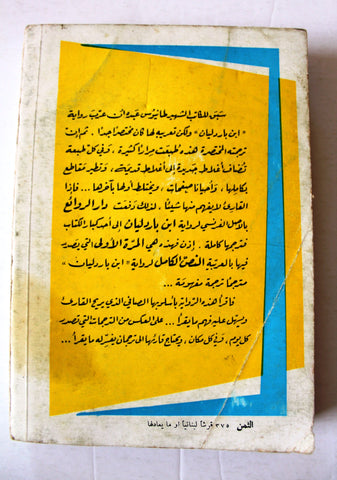 سبق للكاتب الشهير طانيوس عبده ان عرّب رواية
"ابن بارداليان" ولكن تعريبه لها كان مختصرًا جدًا. ثم إن
ترجمته المختصرة هذه طبعت مرارًا كثيرة، وفي كل طبعة
تضاف أغلاط جديدة إلى أغلاط قديمة، وتطير مقاطع
بكاملها، وأحيانًا صفحات، ويختلط أولها بآخرها... فإذا
القارئ لا يفهم منها شيئًا. لذلك دفعت دار الروائع
بالأصل الفرنسي لرواية ابن بارداليان إلى أحد كبار الكتاب
فترجمها كاملة. إذن فهذه هي المرة الأولى التي يصدر
فيها بالعربية النص الكامل لرواية "ابن بارداليان"
مترجمًا ترجمة مفهومة...
فاقرأ هذه الرواية بأسلوبها الصافي الذي يريح القارئ
ويسهل عليه فهم ما يقرأ... على العكس من الترجمات التي تصدر
كل يوم، في كل مكان، ويحتاج قارئها إلى ترجمان يفسّر له ما يقرأ...
الثمن ٣٧٥ قرشا لبنانيا او ما يعادلها